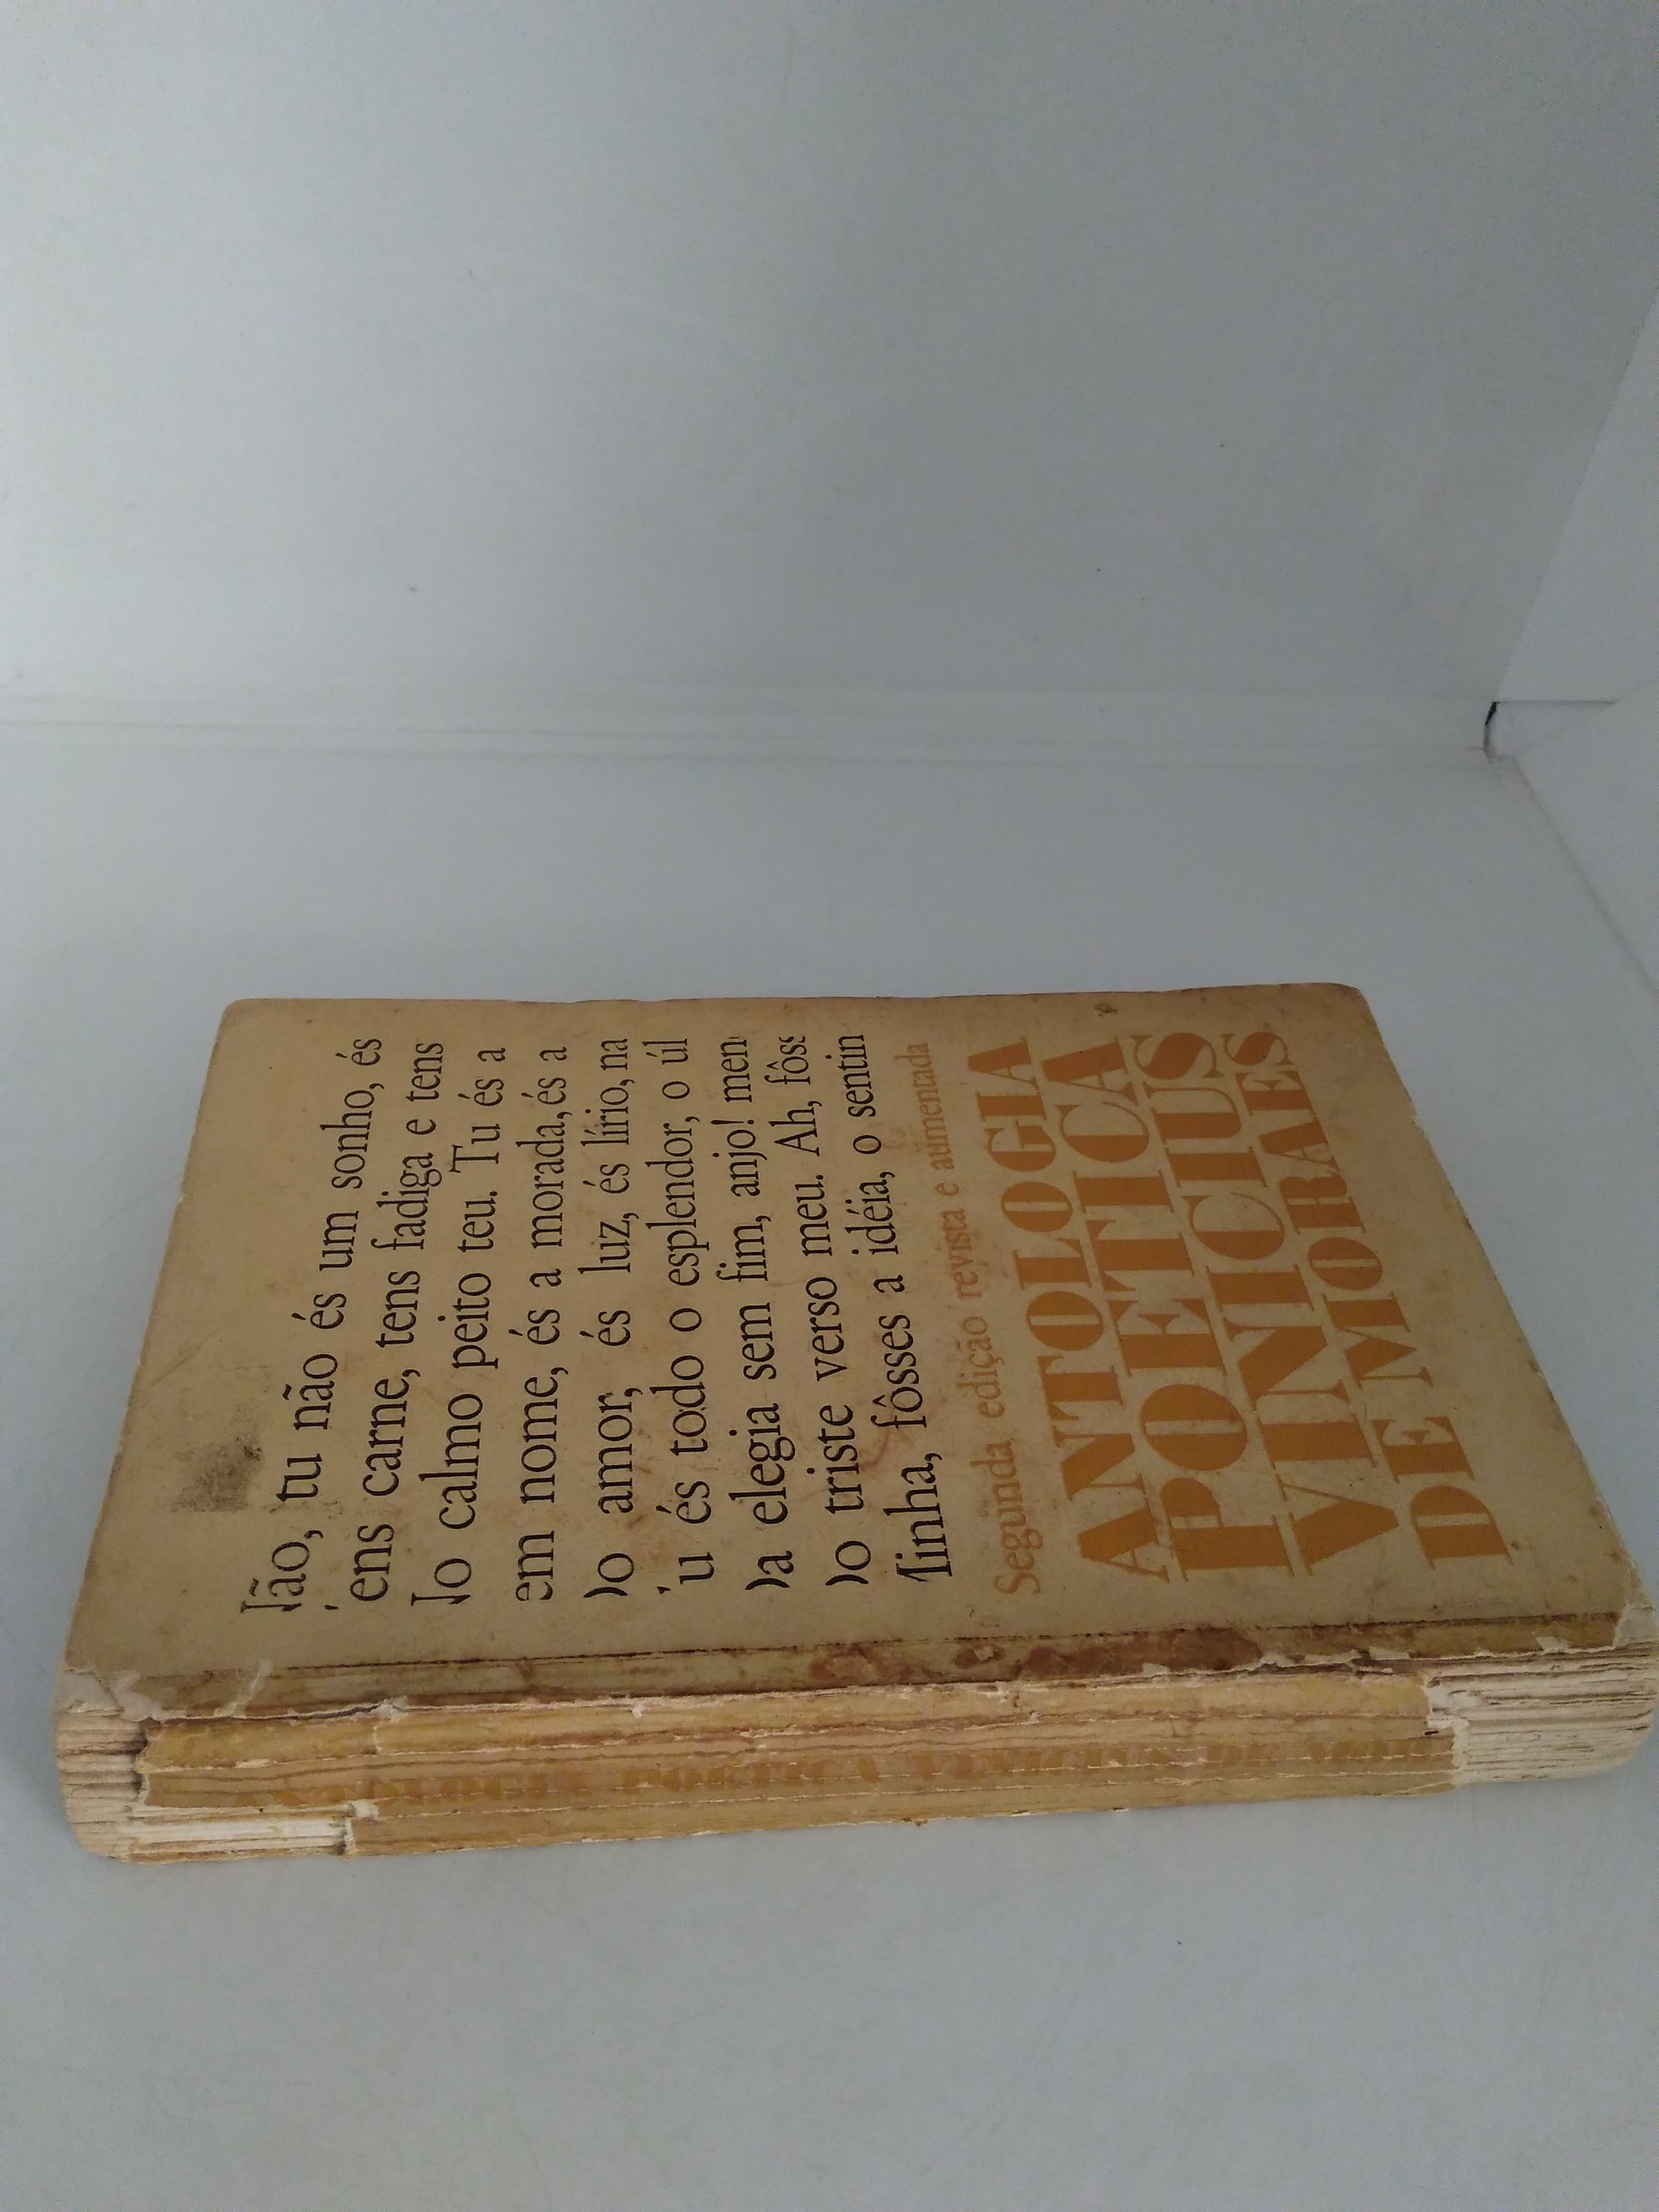 Não, tu não és um sonho, és
Tens carne, tens fadiga e tens
No calmo peito teu. Tu és a
em nome, és a morada, és a
Do amor, és luz, és lírio, na
Tu és todo o esplendor, o úl
Da elegia sem fim, anjo! men
Do triste verso meu. Ah, fôss
Minha, fôsses a idéia, o sentin
Segunda edição revista e aumentada
ANTOLOGIA
POETICA
VINICIUS
DE MORAES
ANTOLOGIA POETICA VINICIUS DE MOR